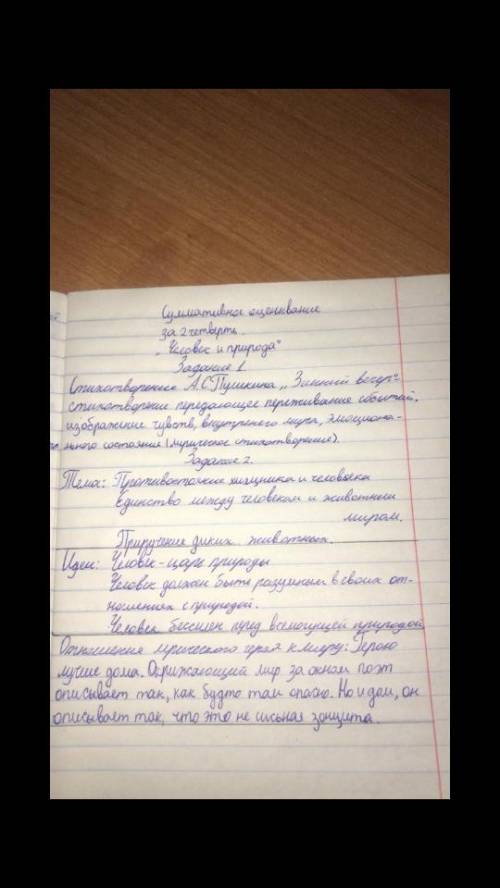 Суммативное оценивание
за 2 четверть.
"Человек и природа"
Задание 1.
Стихотворение А.С.Пушкина "Зимний вечер"-
стихотворение передающее переживание событий,
изображение чувств, внутреннего мира, эмоциона-
льного состояния (лирическое стихотворение).
Задание 2.
Тема: Противостояние хищника и человека
Единство между человеком и животным
миром.
Приручение диких животных.
Идеи: Человек-царь природы
Человек должен быть разумным в своих от-
ношениях с природой.
Человек бессилен перед всемогущей природой
Отношение лирического героя к миру: Герою
лучше дома. Окружающий мир за окном поэт
описывает так, как будто там опасно. Но и дом, он
описывает так, что это не сильная защита.